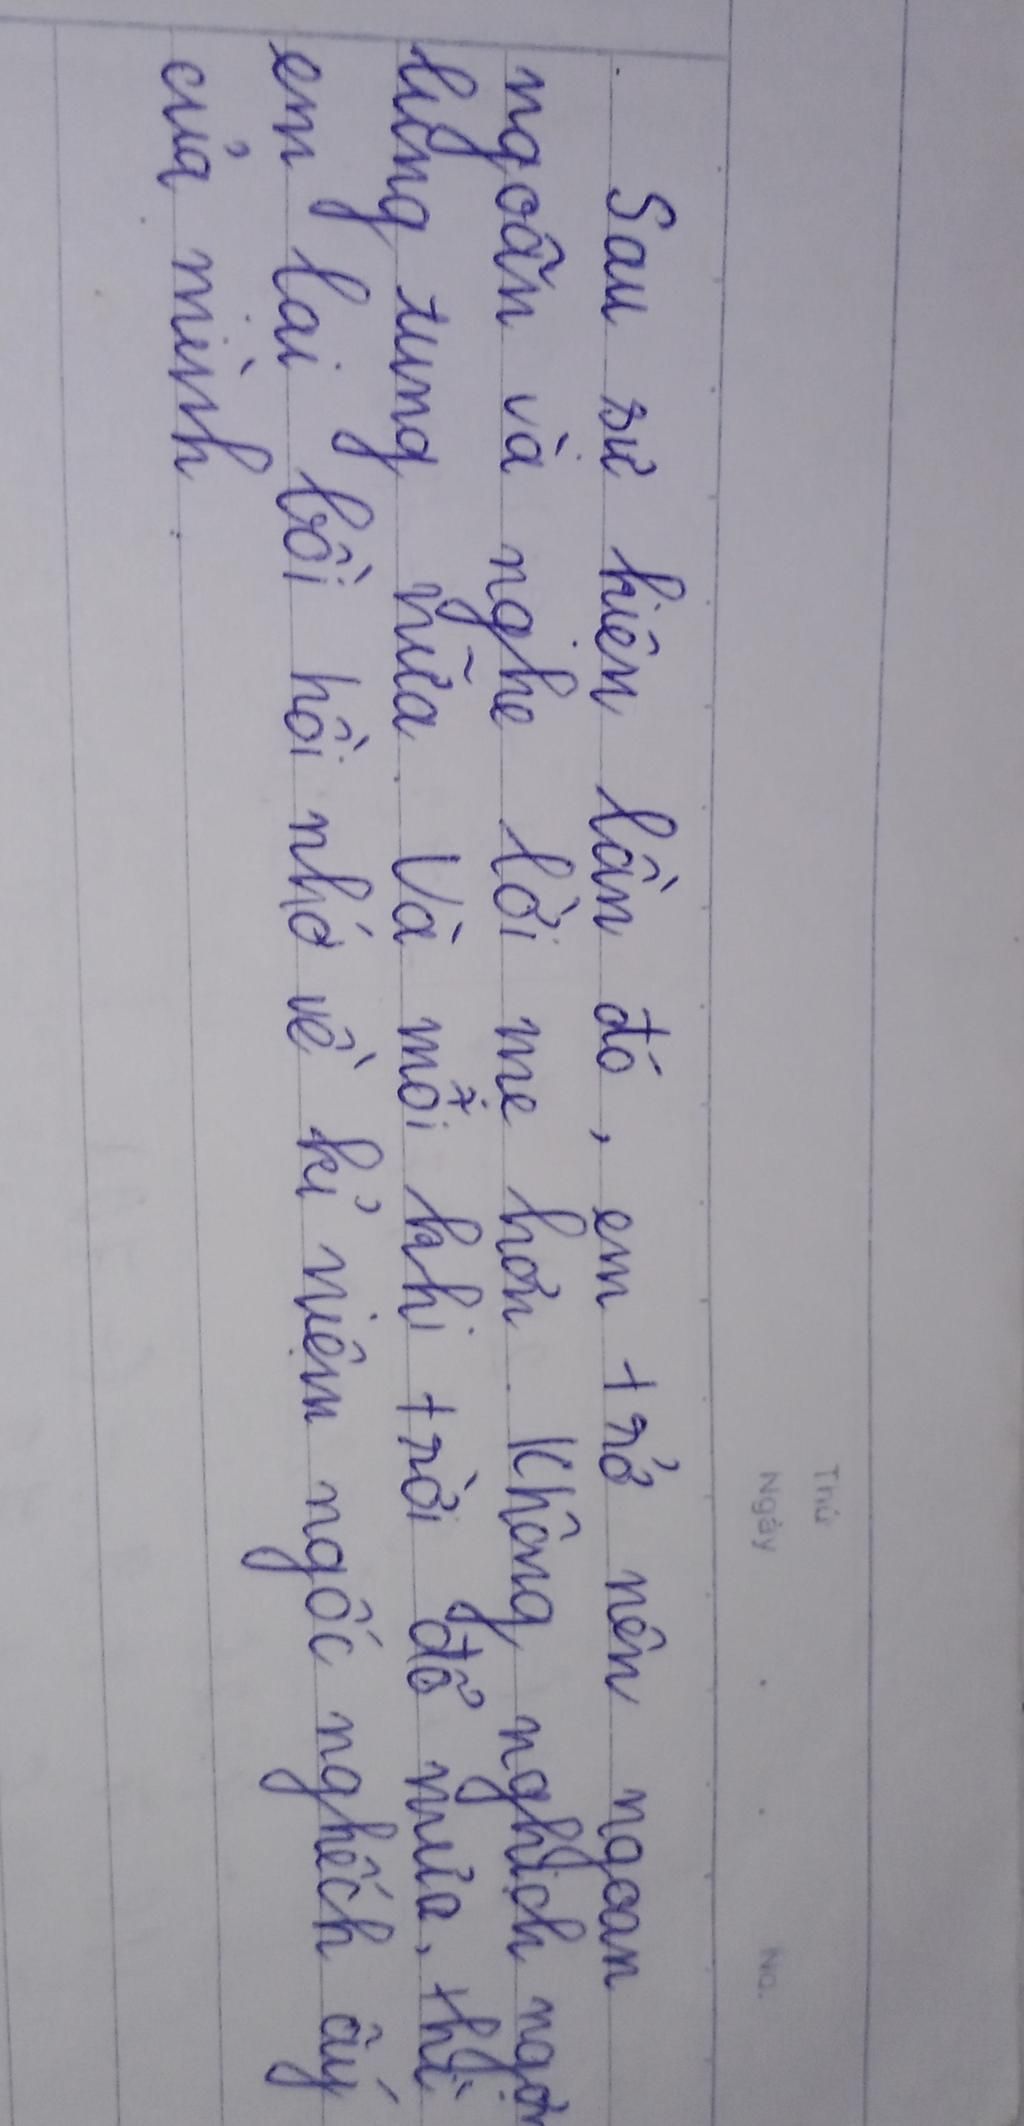 Thứ
Ngày . . No.
Sau sự kiện lần đó, em trở nên ngoan
ngoãn và nghe lời mẹ hơn. Không nghịch
lung tung nữa. Và mỗi khi trời đổ mưa, thì
em lại bồi hồi nhớ về kỉ niệm ngốc nghếch ấy
của mình.